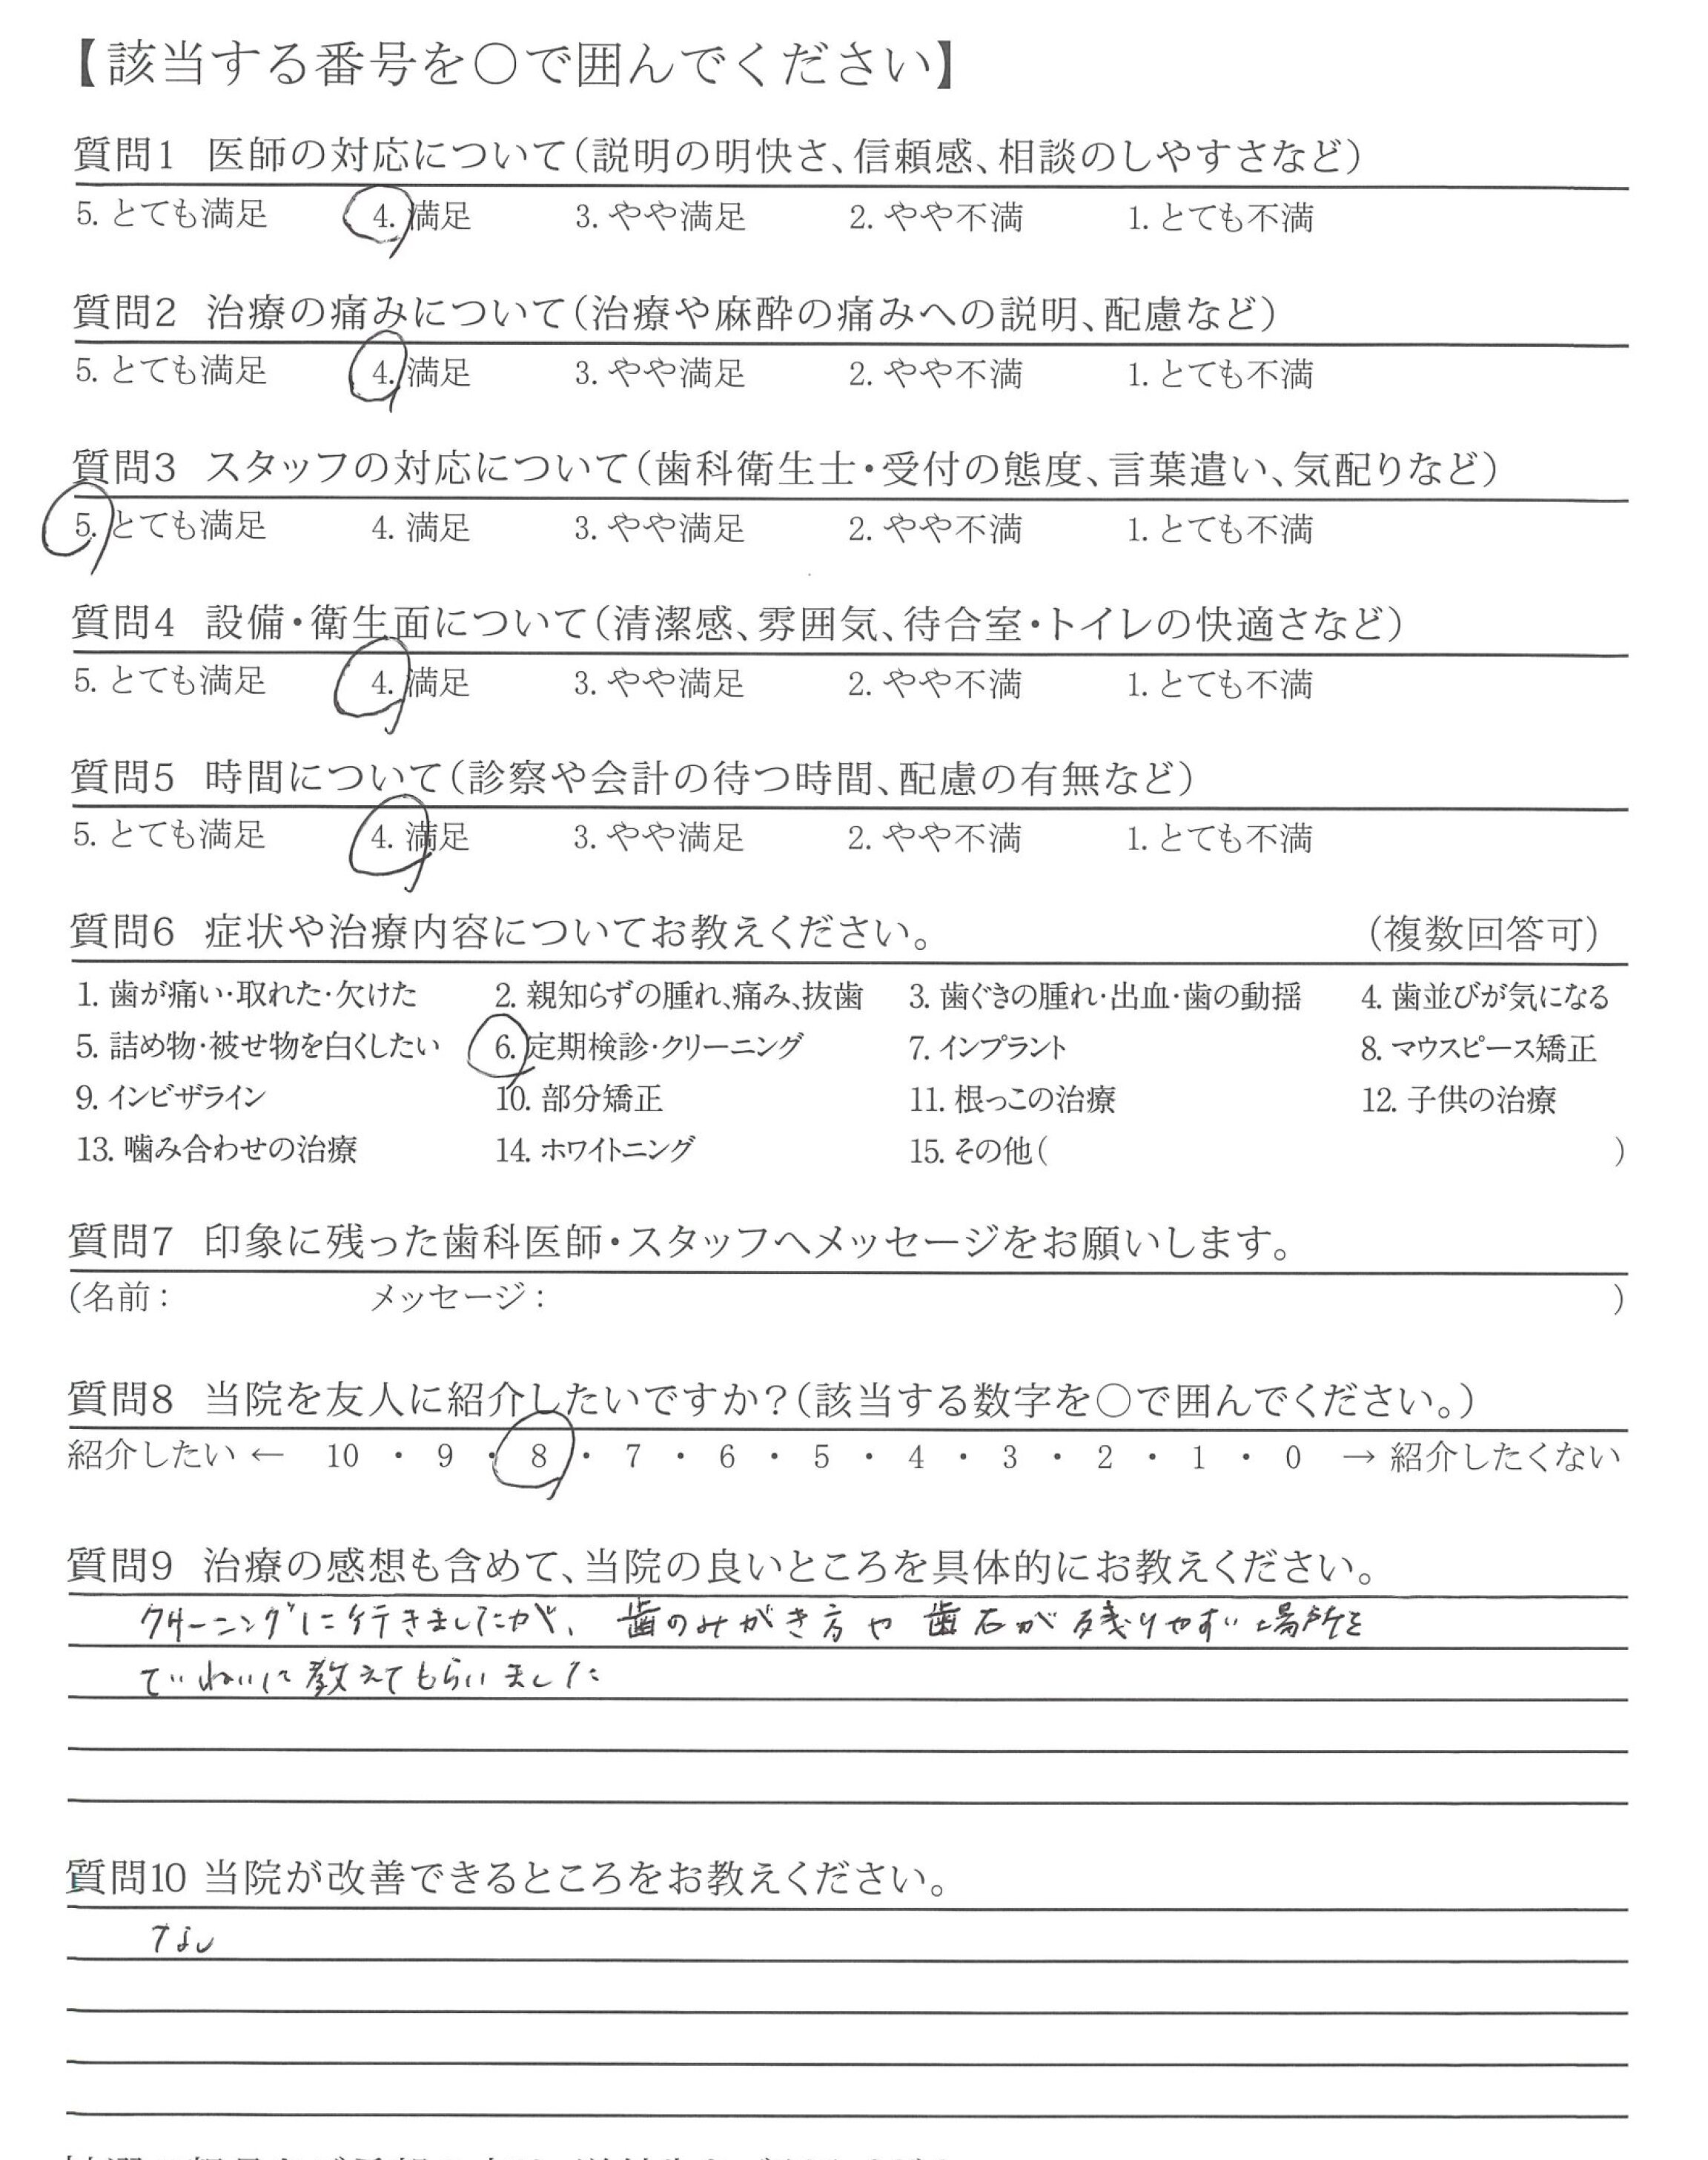 【該当する番号を○で囲んでください】
質問1 医師の対応について(説明の明快さ、信頼感、相談のしやすさなど)
5. とても満足 4. 満足 3. やや満足 2. やや不満 1. とても不満
質問2 治療の痛みについて(治療や麻酔の痛みへの説明、配慮など)
5. とても満足 4. 満足 3. やや満足 2. やや不満 1. とても不満
質問3 スタッフの対応について(歯科衛生士・受付の態度、言葉遣い、気配りなど)
5. とても満足 4. 満足 3. やや満足 2. やや不満 1. とても不満
質問4 設備・衛生面について(清潔感、雰囲気、待合室・トイレの快適さなど)
5. とても満足 4. 満足 3. やや満足 2. やや不満 1. とても不満
質問5 時間について(診察や会計の待つ時間、配慮の有無など)
5. とても満足 4. 満足 3. やや満足 2. やや不満 1. とても不満
質問6 症状や治療内容についてお教えください。 (複数回答可)
1. 歯が痛い・取れた・欠けた 2. 親知らずの腫れ、痛み、抜歯 3. 歯ぐきの腫れ・出血・歯の動揺 4. 歯並びが気になる
5. 詰め物・被せ物を白くしたい 6. 定期検診・クリーニング 7. インプラント 8. マウスピース矯正
9. インビザライン 10. 部分矯正 11. 根っこの治療 12. 子供の治療
13. 噛み合わせの治療 14. ホワイトニング 15. その他( )
質問7 印象に残った歯科医師・スタッフへメッセージをお願いします。
(名前: メッセージ: )
質問8 当院を友人に紹介したいですか?(該当する数字を○で囲んでください。)
紹介したい ← 10 ・ 9 ・ 8 ・ 7 ・ 6 ・ 5 ・ 4 ・ 3 ・ 2 ・ 1 ・ 0 → 紹介したくない
質問9 治療の感想も含めて、当院の良いところを具体的にお教えください。
クリーニングに行きましたが、歯のみがき方や歯石が残りやすい場所を
ていねいに教えてもらいました
質問10 当院が改善できるところをお教えください。
なし